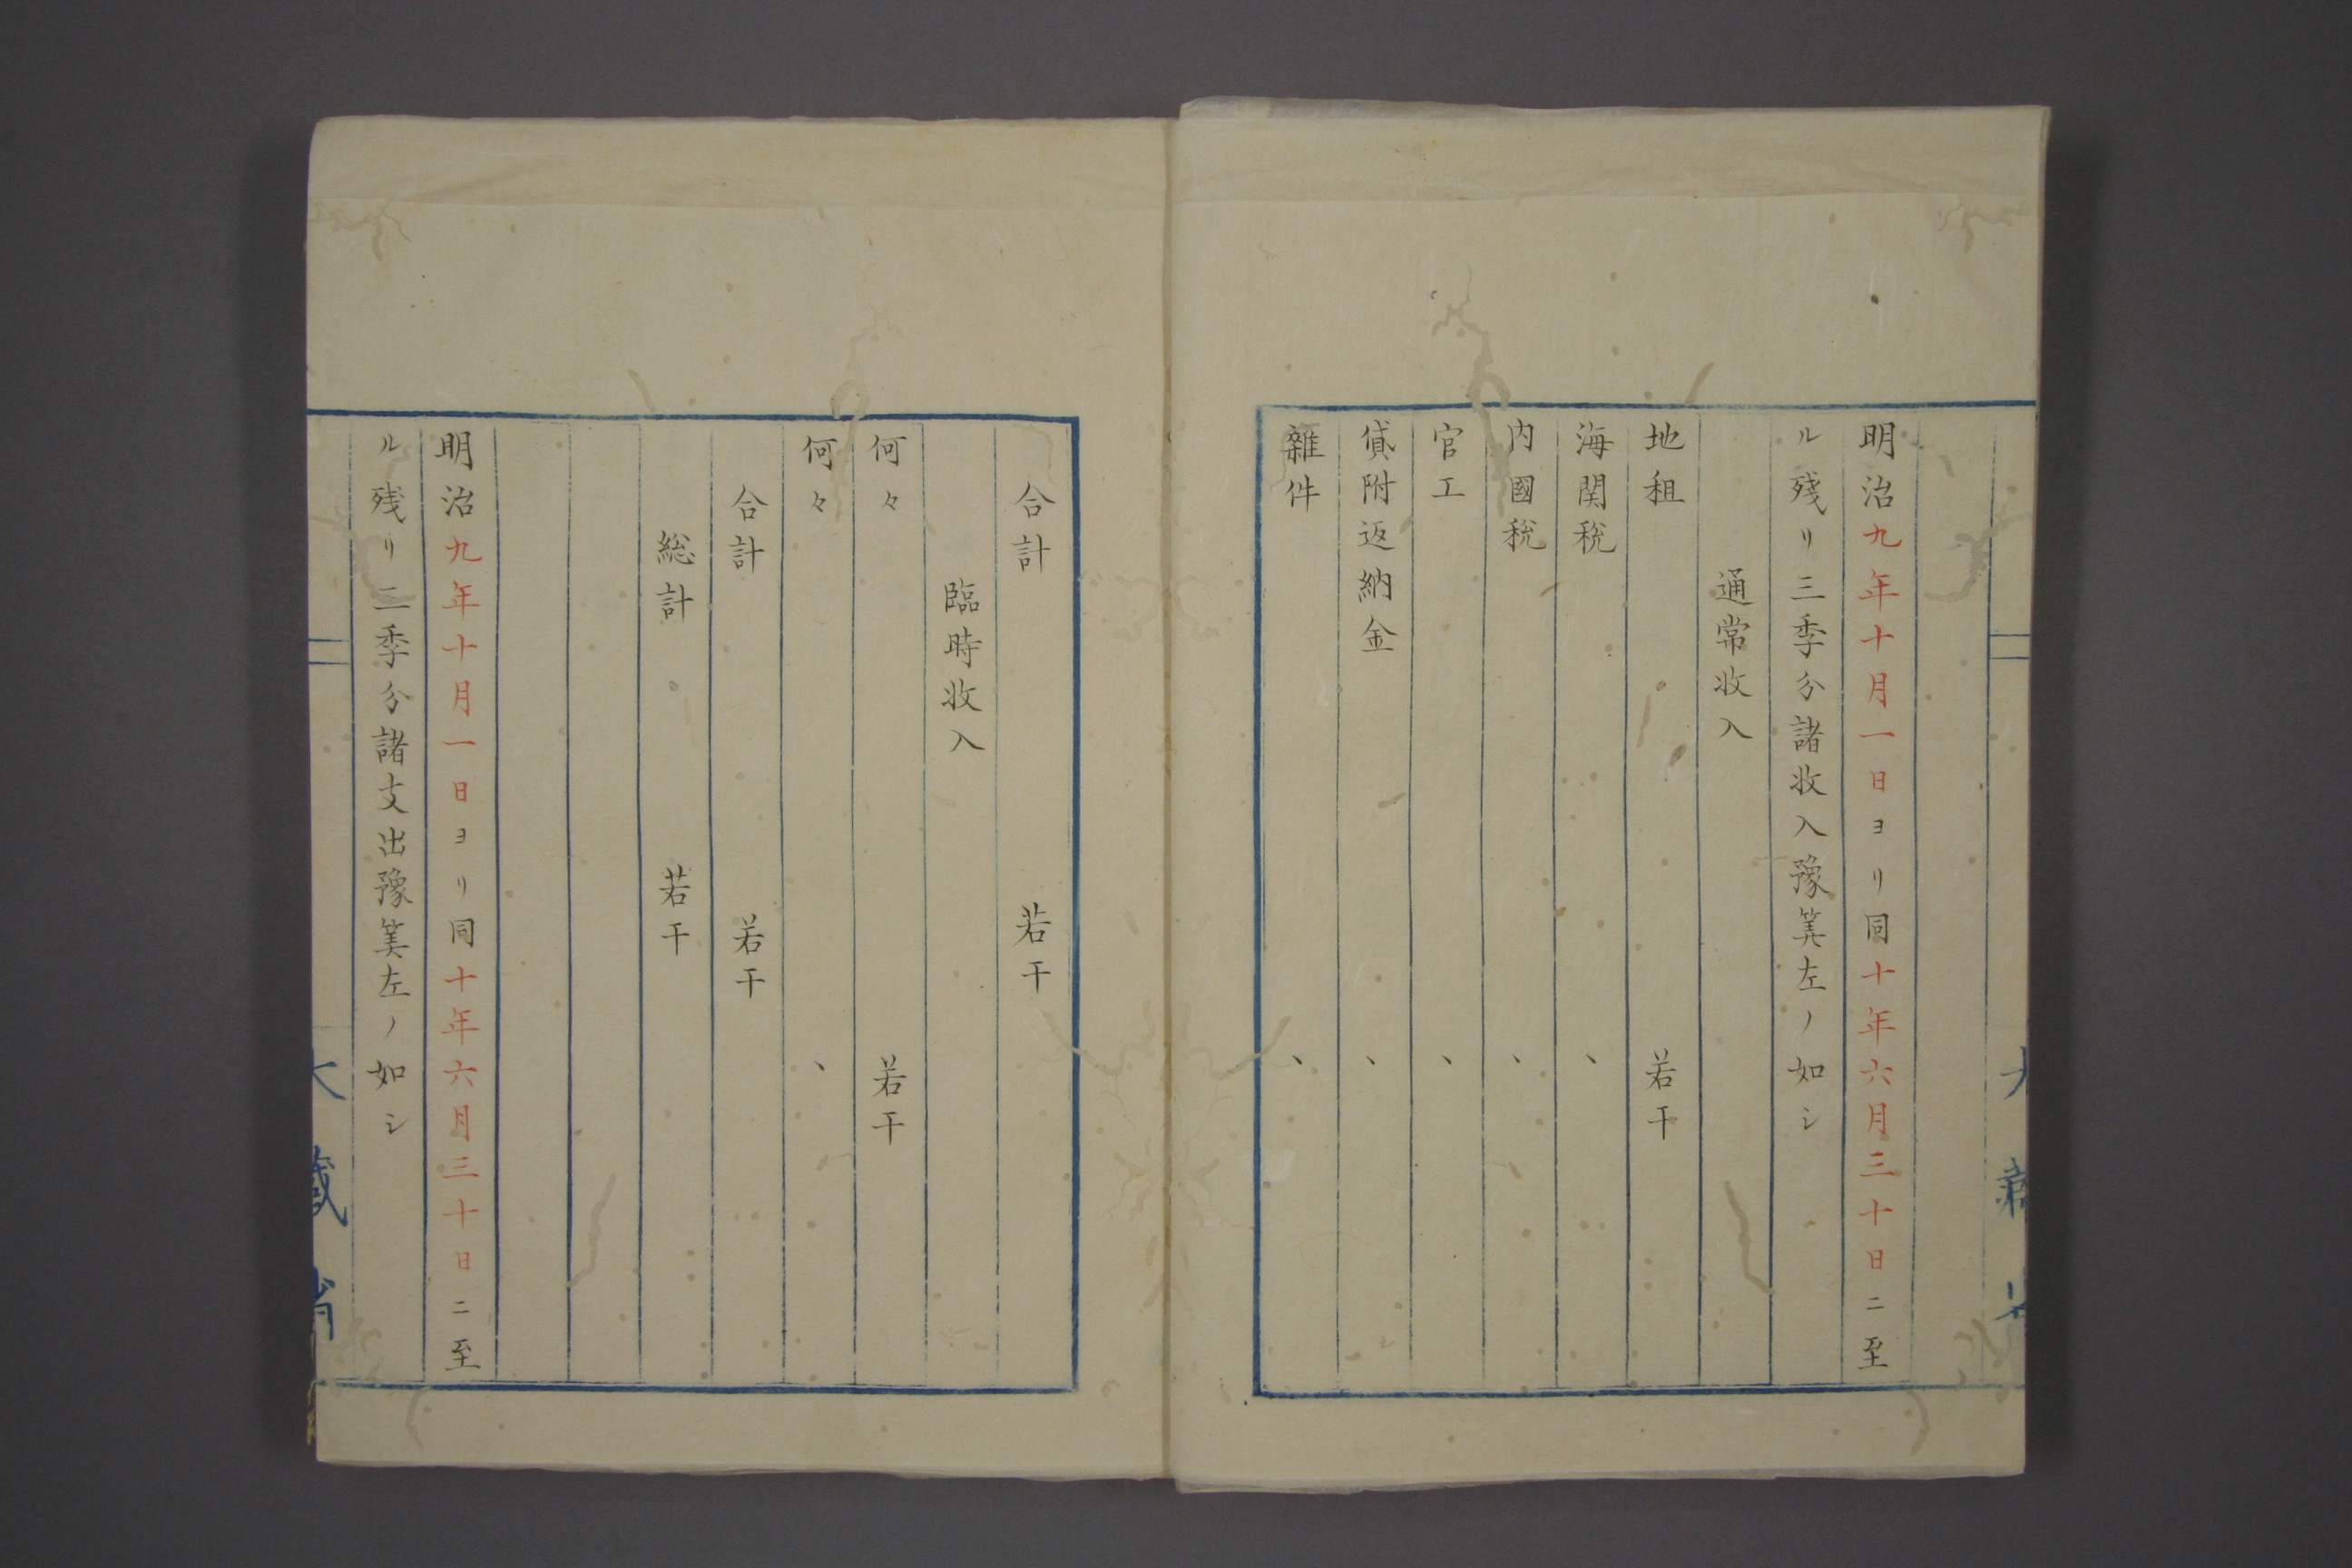 明治九年十月一日ヨリ同十年六月三十日ニ至
ル残リ三季分諸收入豫筭左ノ如シ
通常收入
地租 若干
海関税 、
内國税 、
官工 、
貸附返納金 、
雜件 、
合計 若干
臨時收入
何々 若干
何々 、
合計 若干
総計 若干
明治九年十月一日ヨリ同十年六月三十日ニ至
ル残リ二季分諸支出豫筭左ノ如シ
大藏省